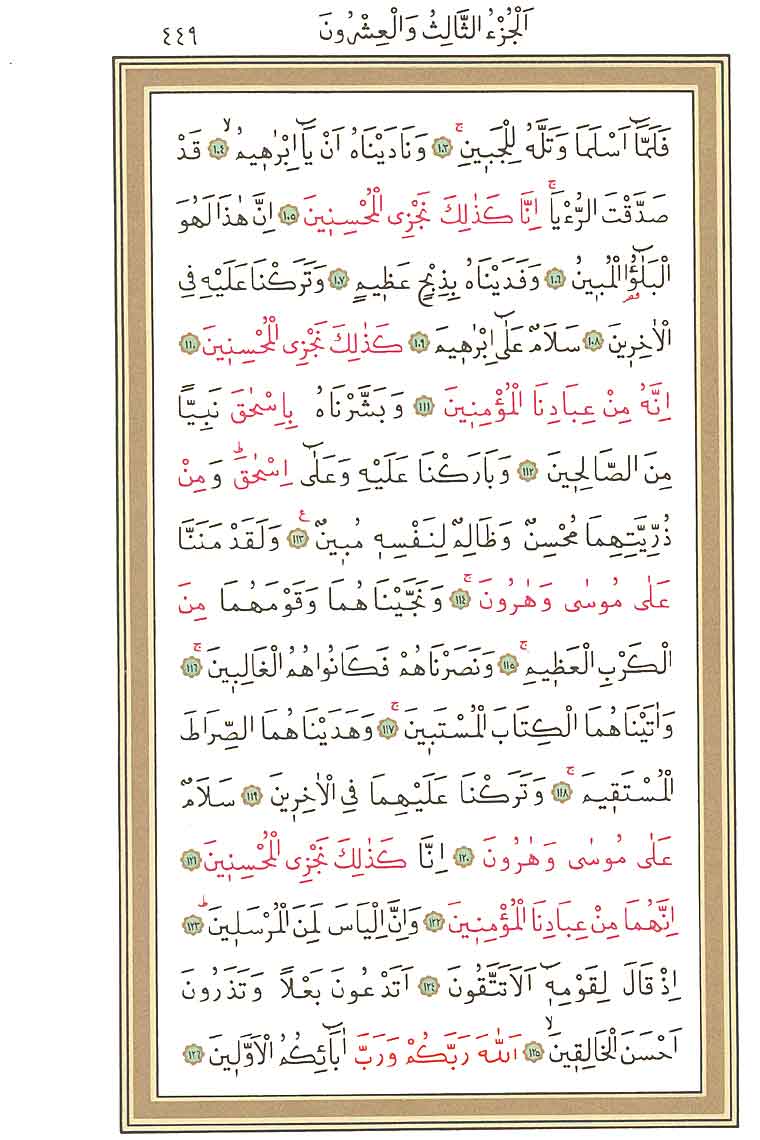 اَلْجُزْءُ الثَّالِثُ وَالْعِشْرُونَ ٤٤٩
فَلَمَّٓا اَسْلَمَا وَتَلَّهُ لِلْجَبٖينِۚ ﴿١٠٣﴾ وَنَادَيْنَاهُ اَنْ يَٓا اِبْرٰهٖيمُۙ ﴿١٠٤﴾ قَدْ
صَدَّقْتَ الرُّءْيَاۚ اِنَّا كَذٰلِكَ نَجْزِى الْمُحْسِنٖينَ ﴿١٠٥﴾ اِنَّ هٰذَا لَهُوَ
الْبَلٰٓؤُا الْمُبٖينُ ﴿١٠٦﴾ وَفَدَيْنَاهُ بِذِبْحٍ عَظٖيمٍ ﴿١٠٧﴾ وَتَرَكْنَا عَلَيْهِ فِى
الْاٰخِرٖينَ ﴿١٠٨﴾ سَلَامٌ عَلٰٓى اِبْرٰهٖيمَ ﴿١٠٩﴾ كَذٰلِكَ نَجْزِى الْمُحْسِنٖينَ ﴿١١٠﴾
اِنَّهُ مِنْ عِبَادِنَا الْمُؤْمِنٖينَ ﴿١١١﴾ وَبَشَّرْنَاهُ بِاِسْحٰقَ نَبِيًّا
مِنَ الصَّالِحٖينَ ﴿١١٢﴾ وَبَارَكْنَا عَلَيْهِ وَعَلٰٓى اِسْحٰقَؕ وَمِنْ
ذُرِّيَّتِهِمَا مُحْسِنٌ وَظَالِمٌ لِنَفْسِهٖ مُبٖينٌ ﴿١١٣﴾ ع وَلَقَدْ مَنَنَّا
عَلٰى مُوسٰى وَهٰرُونَۚ ﴿١١٤﴾ وَنَجَّيْنَاهُمَا وَقَوْمَهُمَا مِنَ
الْكَرْبِ الْعَظٖيمِۚ ﴿١١٥﴾ وَنَصَرْنَاهُمْ فَكَانُوا هُمُ الْغَالِبٖينَۚ ﴿١١٦﴾
وَاٰتَيْنَاهُمَا الْكِتَابَ الْمُسْتَبٖينَۚ ﴿١١٧﴾ وَهَدَيْنَاهُمَا الصِّرَاطَ
الْمُسْتَقٖيمَۚ ﴿١١٨﴾ وَتَرَكْنَا عَلَيْهِمَا فِى الْاٰخِرٖينَ ﴿١١٩﴾ سَلَامٌ
عَلٰى مُوسٰى وَهٰرُونَ ﴿١٢٠﴾ اِنَّا كَذٰلِكَ نَجْزِى الْمُحْسِنٖينَ ﴿١٢١﴾
اِنَّهُمَا مِنْ عِبَادِنَا الْمُؤْمِنٖينَ ﴿١٢٢﴾ وَاِنَّ اِلْيَاسَ لَمِنَ الْمُرْسَلٖينَؕ ﴿١٢٣﴾
اِذْ قَالَ لِقَوْمِهٖٓ اَلَا تَتَّقُونَ ﴿١٢٤﴾ اَتَدْعُونَ بَعْلًا وَتَذَرُونَ
اَحْسَنَ الْخَالِقٖينَۙ ﴿١٢٥﴾ اَللّٰهَ رَبَّكُمْ وَرَبَّ اٰبَٓائِكُمُ الْاَوَّلٖينَ ﴿١٢٦﴾